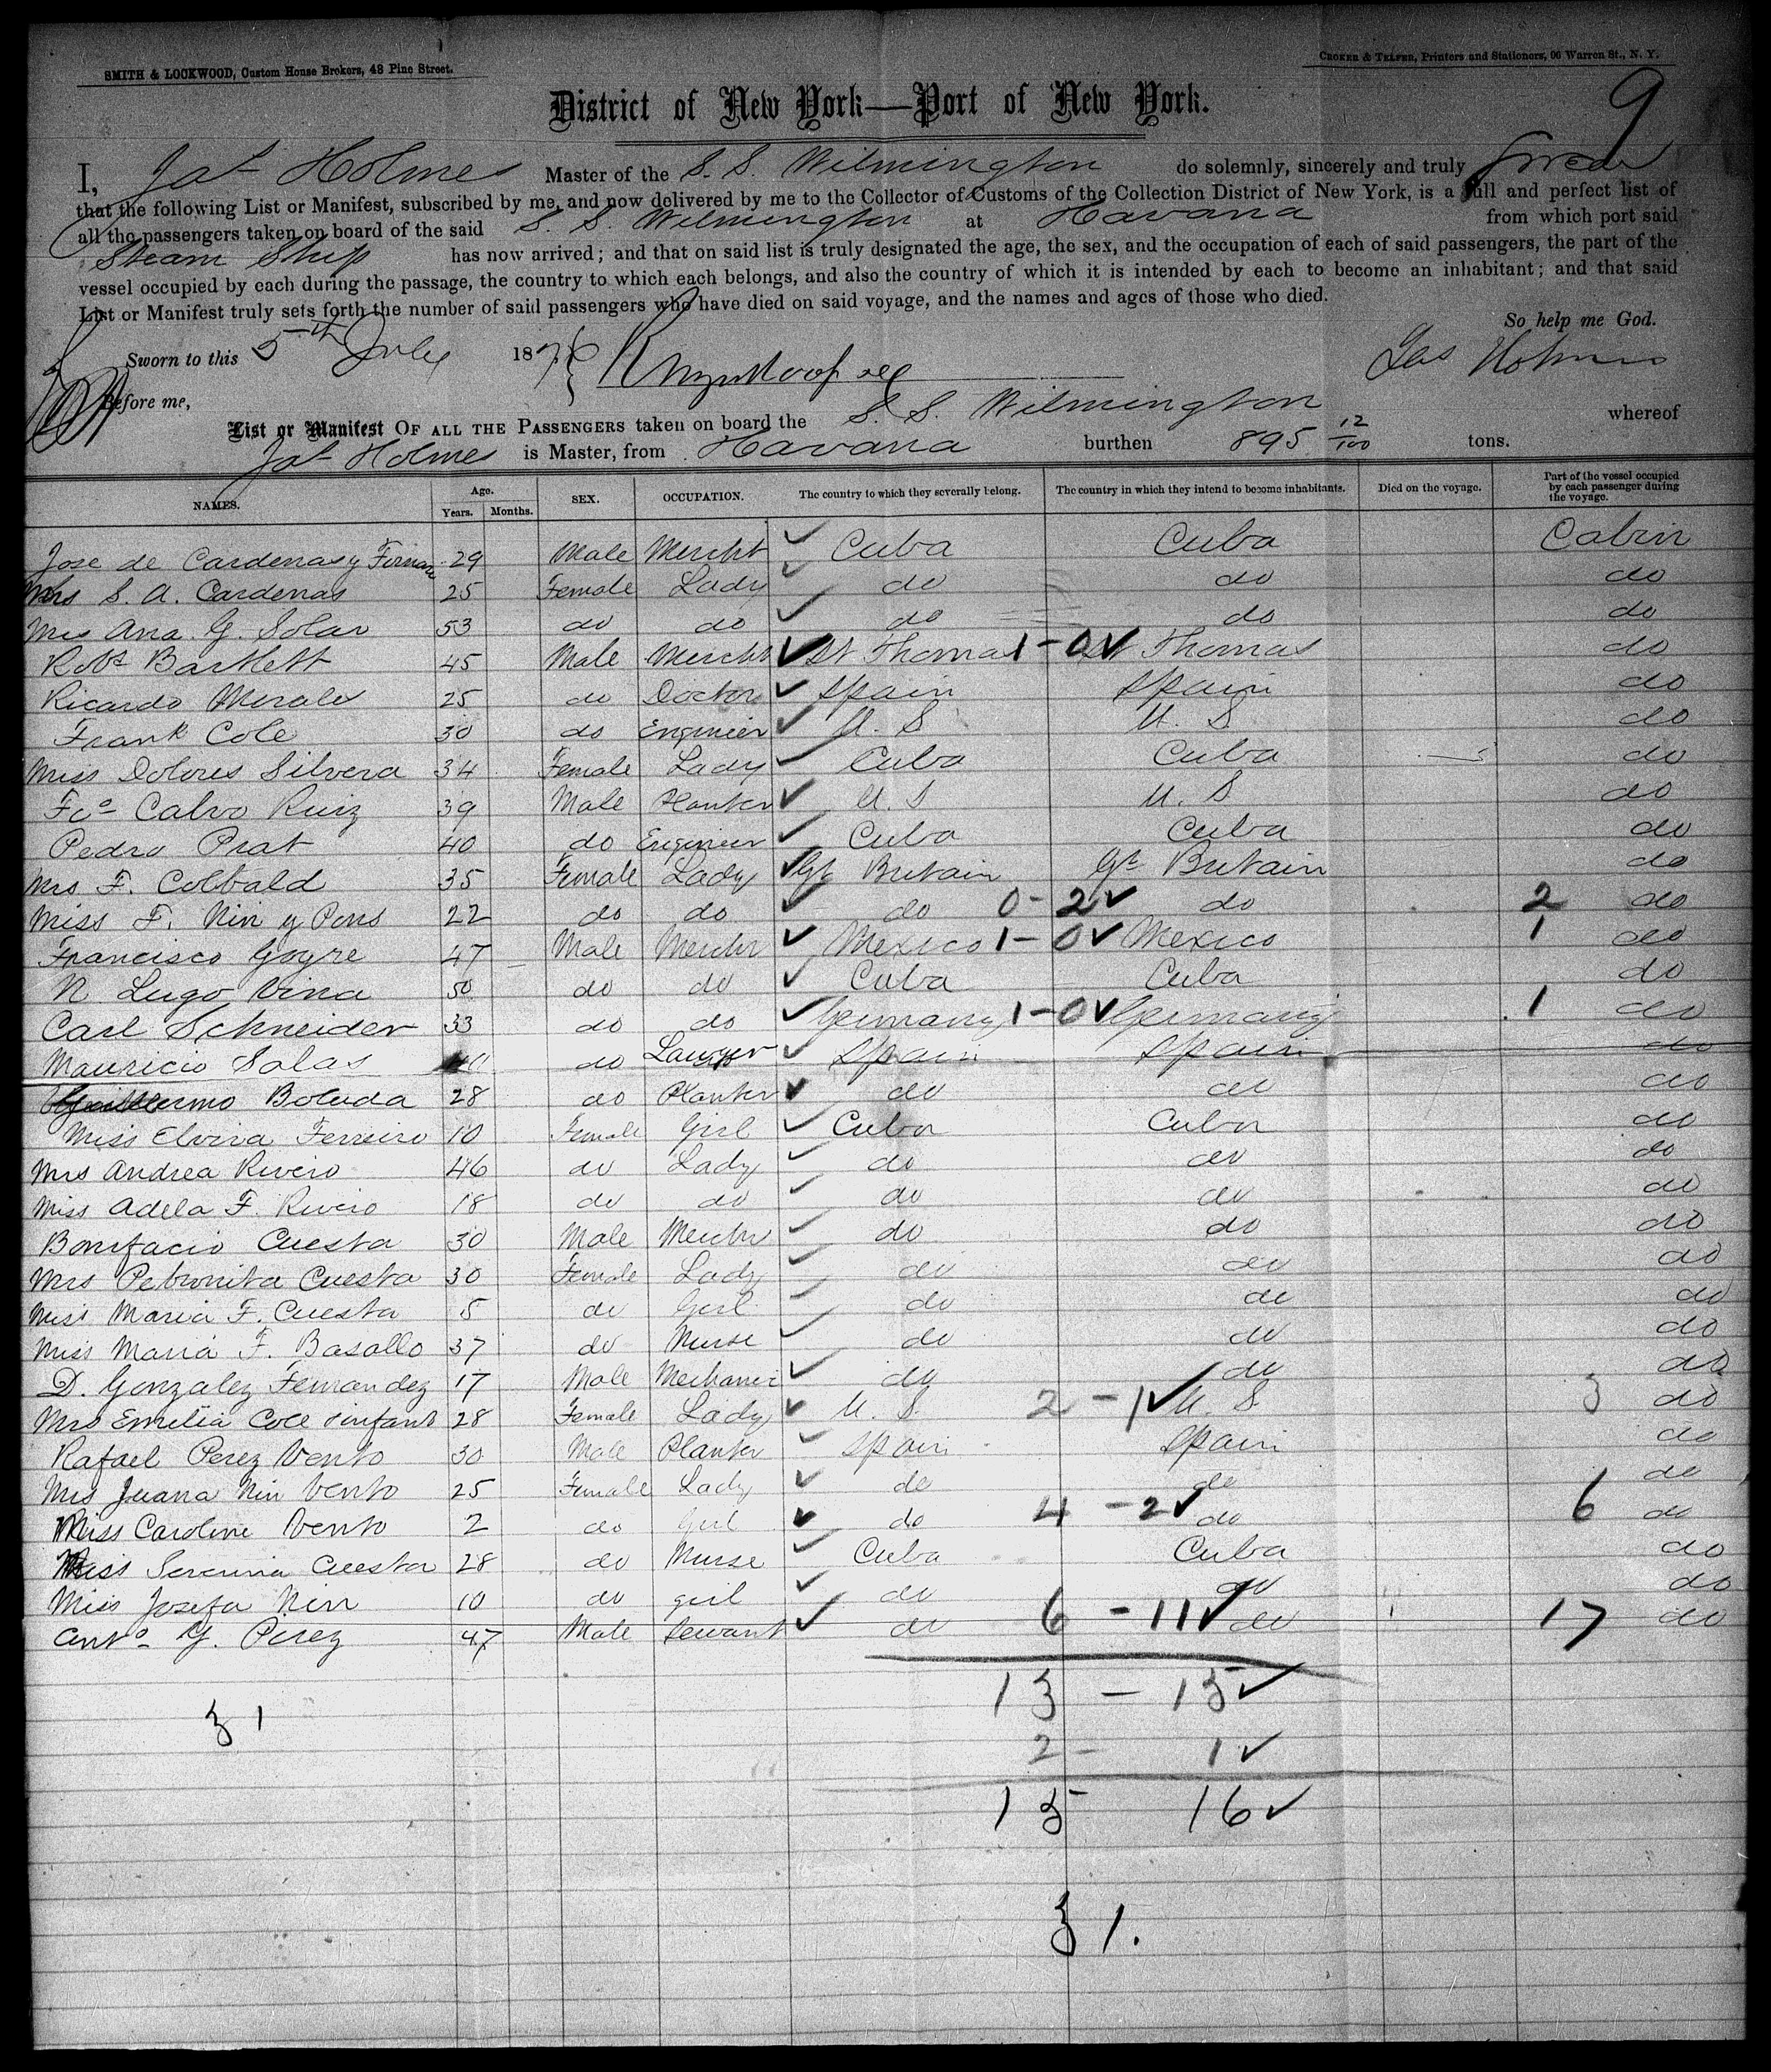 SMITH & LOCKWOOD, Custom House Brokers, 48 Pine Street.
CROKER & TELFER, Printers and Stationers, 90 Warren St., N. Y.
9
District of New York—Port of New York.
I, Jas Holmes Master of the S. S. Wilmington do solemnly, sincerely and truly swear
that the following List or Manifest, subscribed by me, and now delivered by me to the Collector of Customs of the Collection District of New York, is a full and perfect list of
all the passengers taken on board of the said S. S. Wilmington at Havana from which port said
Steam Ship has now arrived; and that on said list is truly designated the age, the sex, and the occupation of each of said passengers, the part of the
vessel occupied by each during the passage, the country to which each belongs, and also the country of which it is intended by each to become an inhabitant; and that said
List or Manifest truly sets forth the number of said passengers who have died on said voyage, and the names and ages of those who died.
So help me God.
Sworn to this 5th July 1876 Jas Holmes
Before me,
List or Manifest OF ALL THE PASSENGERS taken on board the S. S. Wilmington whereof
Jas Holmes is Master, from Havana burthen 895 12/100 tons.
NAMES. Age. Years. Months. SEX. OCCUPATION. The country to which they severally belong. The country in which they intend to become inhabitants. Died on the voyage. Part of the vessel occupied by each passenger during the voyage.
Jose de Cardenas y 29 Male Mercht Cuba Cuba Cabin
Mrs S. A. Cardenas 25 Female Lady do do do
Mrs Ana. G. Solar 53 do do do do do
Robt Bartlett 45 Male Mercht St Thomas 1 - 0 St Thomas do
Ricardo Morales 25 do Doctor Spain Spain do
Frank Cole 30 do Engineer U. S U. S do
Miss Dolores Silvera 34 Female Lady Cuba Cuba do
Fco Calvo Ruiz 39 Male Planter U. S U. S do
Pedro Prat 40 do Engineer Cuba Cuba do
Mrs F. Colbald 35 Female Lady Gt Britain Gt Britain do
Miss F. Nin y Pons 22 do do do 0 - 2 do 2 do
Francisco Goyre 47 Male Mercht Mexico 1 - 0 Mexico 1 do
N. Lugo Vina 50 do do Cuba Cuba do
Carl Schneider 33 do do Germany 1 - 0 Germany 1 do
Mauricio Salas do Lawyer Spain Spain do
Guillermo Boluda 28 do Planter do do do
Miss Elvira Ferreiro 10 Female Girl Cuba Cuba do
Mrs Andrea Rivero 46 do Lady do do do
Miss Adela F. Rivero 18 do do do do do
Bonifacio Cuesta 30 Male Mercht do do do
Mrs Petronita Cuesta 30 Female Lady do do do
Miss Maria F. Cuesta 5 do Girl do do do
Miss Maria F. Basallo 37 do Nurse do do do
D. Gonzalez Fernandez 17 Male Mechanic do do do
Mrs Emelia Cole & infant 28 Female Lady U. S. 2 - 1 U. S 3 do
Rafael Perez Vento 30 Male Planter Spain Spain do
Mrs Juana Nin Vento 25 Female Lady do do do
Miss Caroline Vento 2 do Girl do 4 - 2 do 6 do
Miss Severina Cuesta 28 do Nurse Cuba Cuba do
Miss Josefa Nin 10 do girl do do do
Anto G. Perez 47 Male Servant do 6 - 11 do 17 do
13 - 15
31
2 - 1
15 16
31.